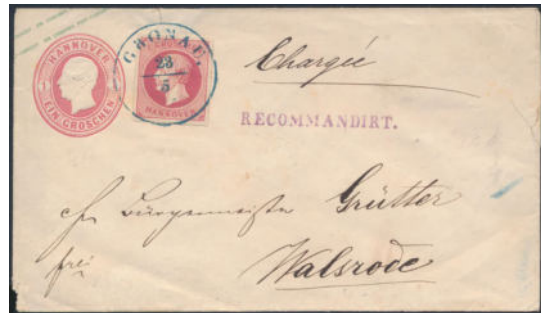 HANNOVER
1 EIN GROSCHEN 1
GRONAU.
23
5
HANNOVER
Chargée
RECOMMANDIRT.
Bürgermeister Grütter
frei
Walsrode